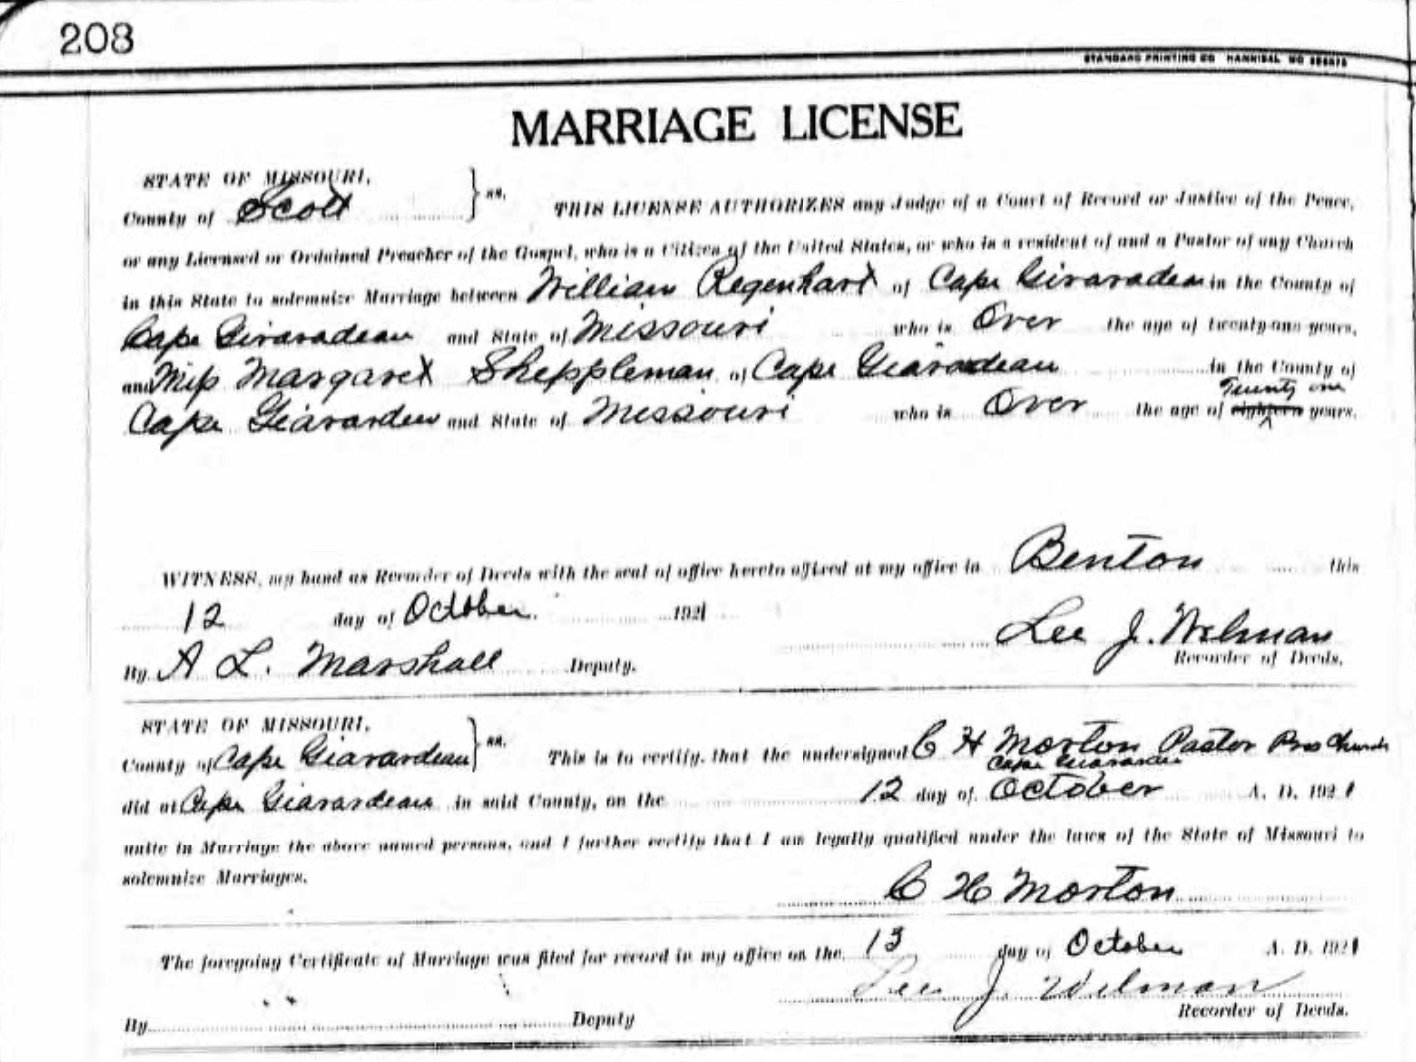 208
STANDARD PRINTING CO HANNIBAL MO
MARRIAGE LICENSE
STATE OF MISSOURI,
County of Scott } ss.
THIS LICENSE AUTHORIZES any Judge of a Court of Record or Justice of the Peace,
or any Licensed or Ordained Preacher of the Gospel, who is a Citizen of the United States, or who is a resident of and a Pastor of any Church
in this State to solemnize Marriage between William Regenhart of Cape Giraradeau in the County of
Cape Giraradeau and State of Missouri who is Over the age of twenty-one years,
and Miss Margaret Sheppleman of Cape Giearadeau in the County of
Twenty one
Cape Giearardeu and State of Missouri who is Over the age of eighteen years.
WITNESS, my hand as Recorder of Deeds with the seal of office hereto affixed at my office in Benton this
12 day of October 1921
Lee J. Welman
By A L. Marshall Deputy.
Recorder of Deeds.
STATE OF MISSOURI,
County of Cape Giearardeau } ss. This is to certify, that the undersigned C H Morton Pastor Church
Cape
did at Cape Giearardeau in said County, on the 12 day of October A. D. 1921
unite in Marriage the above named persons, and I further certify that I am legally qualified under the laws of the State of Missouri to
solemnize Marriages.
C H Morton
The foregoing Certificate of Marriage was filed for record in my office on the 13 day of October A. D. 1921
Lee J. Welman
By Deputy
Recorder of Deeds.